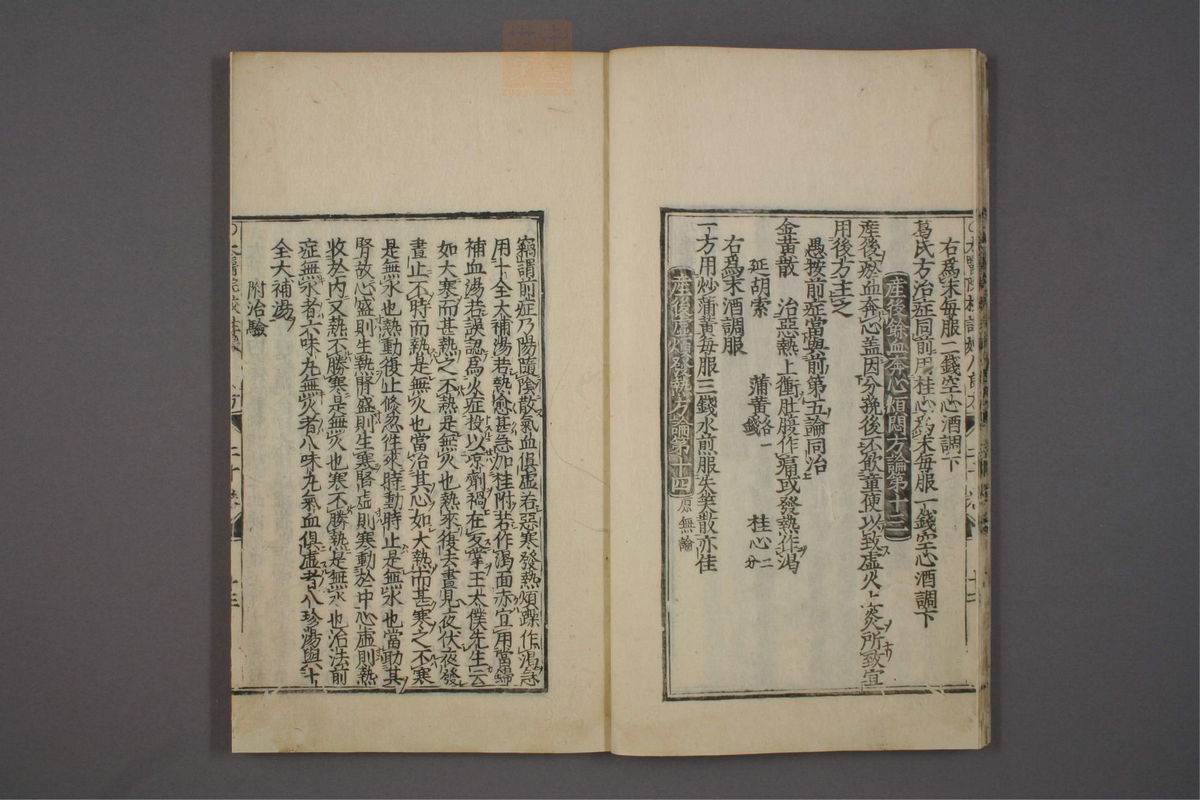 右爲末每服二錢空心酒調下
葛氏方治症同前用桂心爲末每服一錢空心酒調下
産後餘血奔心煩悶方論第十三
産後瘀血奔心盖因分挽後不飲童便以致虛火上炎所致宜
用後方主之
愚按前症當與前第五論同治
金黃散　治惡熱上衝肚腹作痛或發熱作渴
延胡索　蒲黃各一錢　桂心二分
右爲末酒調服
一方用炒蒲黃每服三錢水煎服失笑散亦佳
産後虛煩發熱方論第十四　原無論
竊謂前症乃陽隨陰散氣血俱虛若惡寒發熱煩躁作渴急
用十全大補湯若熱愈甚急加桂附若作渴面赤宜用當歸
補血湯若誤認爲火症投以凉劑禍在反掌王太僕先生云
如大寒而甚熱之不熱是無火也熱來復去晝見夜伏夜發
晝止不時而熱是無火也當治其心如大熱而甚寒之不寒
是無水也熱動復止倐忽徃來時動時止是無水也當助其
腎故心盛則生熱腎盛則生寒腎虛則寒動於中心虛則熱
收於內又熱不勝寒是無火也寒不勝熱是無水也治法前
症無水者六味丸無火者八味丸氣血俱虛者八珍湯與十
全大補湯
附治驗